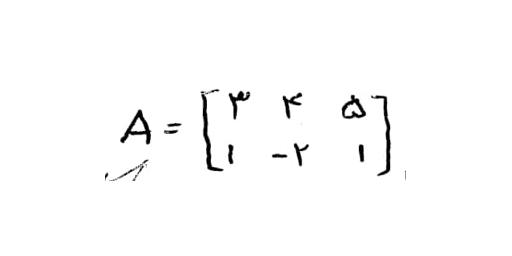 A = [۳ ۴ ۵
۱ -۲ ۱]